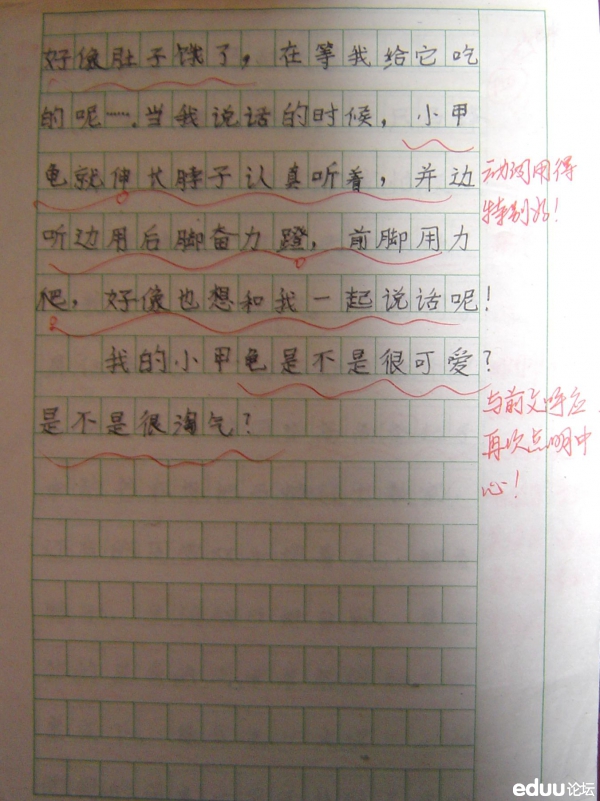 好像肚子饿了，在等我给它吃
的呢……当我说话的时候，小甲
龟就伸长脖子认真听着，并边
听边用后脚奋力蹬，前脚用力
爬，好像也想和我一起说话呢！
我的小甲龟是不是很可爱？
是不是很淘气？
动词用得
特别好！
与前文呼应
再次点明中
心！
eduu论坛